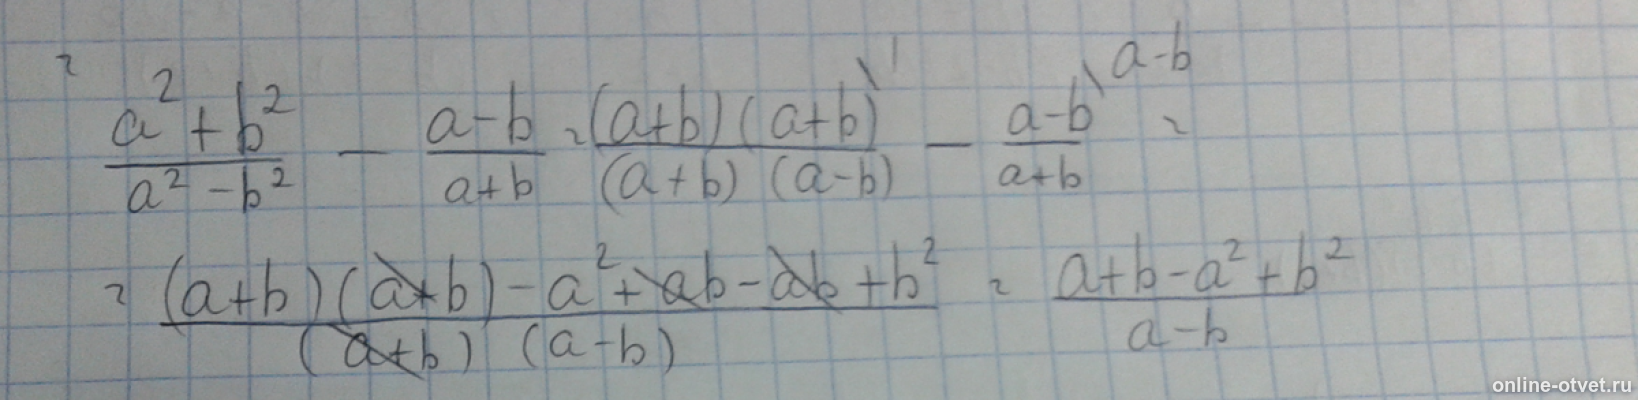 = (a²+b²)/(a²-b²) - (a-b)/(a+b) = ((a+b)(a+b)\1)/((a+b)(a-b)) - (a-b\a-b)/(a+b) =
= ((a+b)(a+b)-a²+ab-ab+b²)/((a+b)(a-b)) = (a+b-a²+b²)/(a-b)
online-otvet.ru